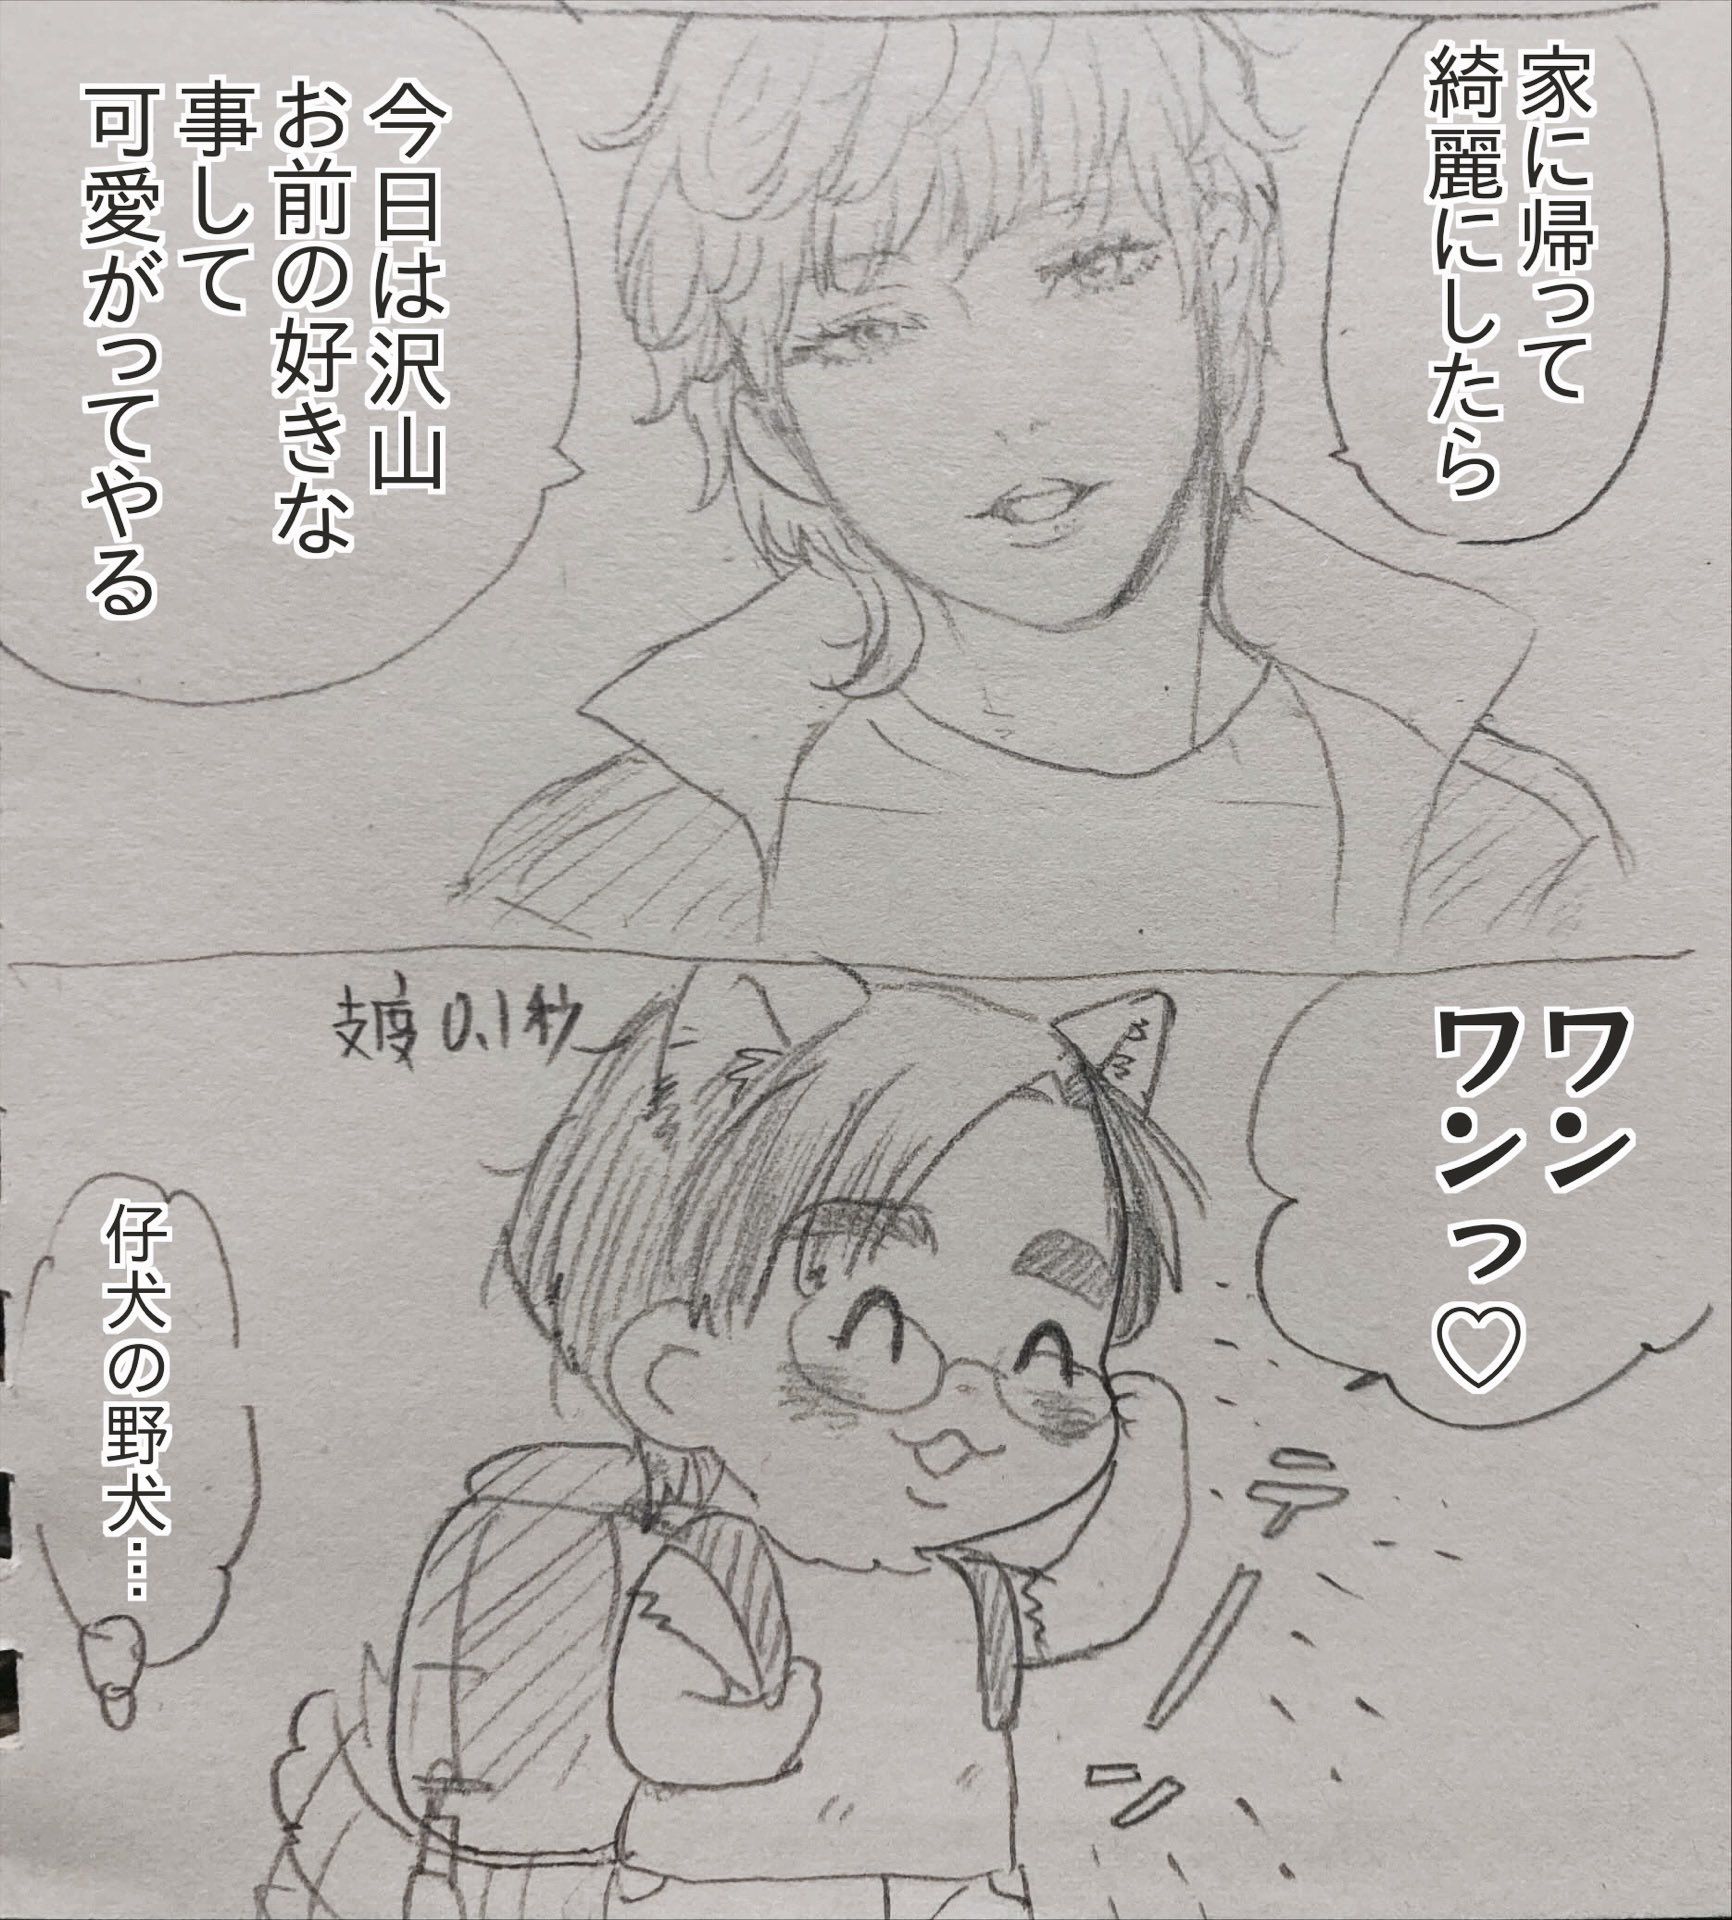 家に帰って
綺麗にしたら
今日は沢山
お前の好きな
事して
可愛がってやる
ワン
ワンっ♡
支度0.1秒
テ
仔犬の野犬…